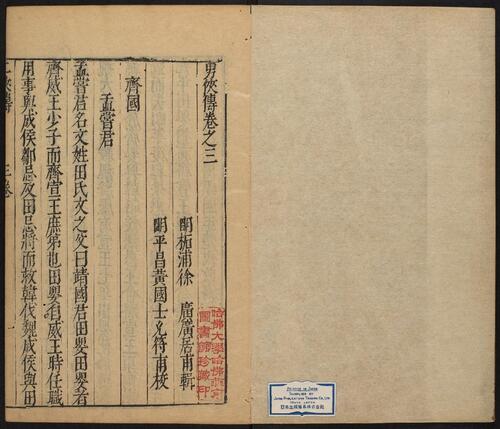 男俠傳卷之三
明柘浦徐 廣廣居甫輯
明平昌黃國士允符甫校
齊國
孟嘗君
孟嘗君名文姓田氏文之父曰靖國君田嬰田嬰者
齊威王少子而齊宣王庶弟也田嬰自威王時任職
用事與成侯鄒忌及田忌將而救韓伐魏成侯與田
俠傳 三卷 一
哈佛大學哈佛燕京
圖書館珍藏印
PRINTED IN JAPAN
SUPPLIED BY
JAPAN PUBLICATIONS TRADING CO., LTD.
TOKYO, JAPAN
日本出版貿易株式会社